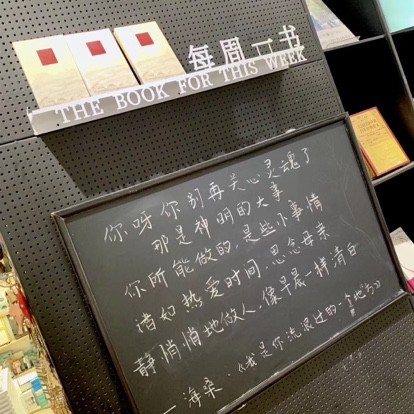 每周一书
THE BOOK FOR THIS WEEK
你呀你别再关心灵魂了
那是神明的大事
你所能做的,是些小事情
诸如热爱时间,思念母亲
静悄悄地做人,像早晨一样清白
—海桑·《我是你流浪过的一个地方》